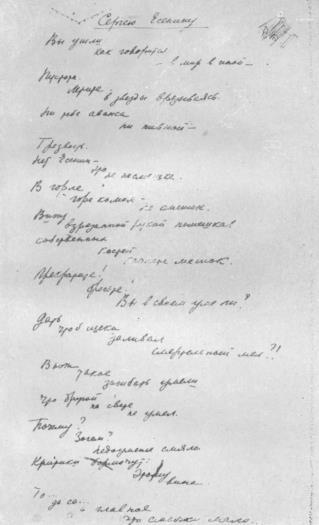 Сергею Есенину
Вы ушли
как говорится
в мир в иной —
Пустота.
Летите
в звезды врезываясь
Ни тебе аванса
ни пивной —
Трезвость.
Нет Есенин —
это не насмешка.
В горле
горе комом —
не смешок.
Вижу
взрезанной рукой помешкав
собственных
костей
качаете мешок.
Прекратите!
бросьте!
Вы в своем уме ли?
Дать
чтоб щека
заливал
смертельный мел?!
Вы ж
такое
загибать умели
что другой
на свете
не умел.
Почему?
Зачем?
недоуменье смяло
Критики бормочут:
Этому
вина
То...
да се...
а главное
что смычки мало